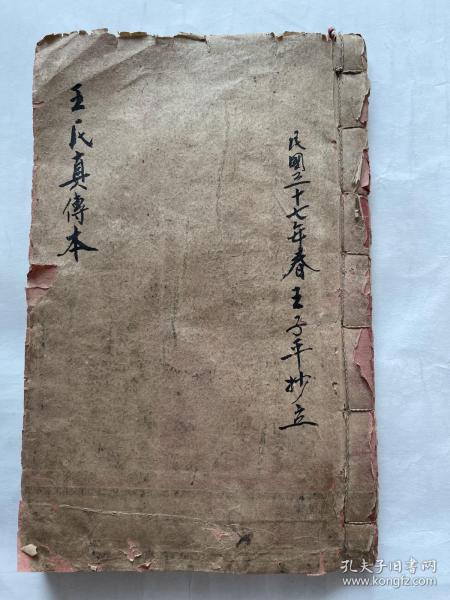 民國三十七年春王子平抄立
王氏真傳本
孔夫子旧书网
www.kongfz.com